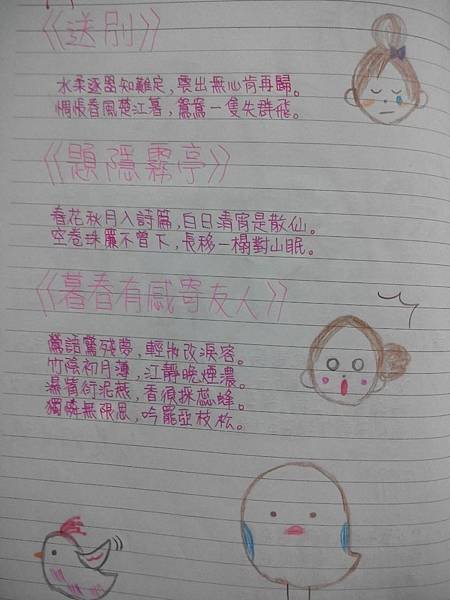 《送別》
水柔逐器知難定,雲出無心肯再歸。
惆悵春風楚江暮,鴛鴦一隻失群飛。
《題隱霧亭》
春花秋月入詩篇,白日清宵是散仙。
空卷珠簾不曾下,長移一榻對山眠。
《暮春有感寄友人》
鶯語驚殘夢,輕妝改淚容。
竹陰初月薄,江靜晚煙濃。
濕觜銜泥燕,香須採蕊蜂。
獨憐無限思,吟罷亞枝松。